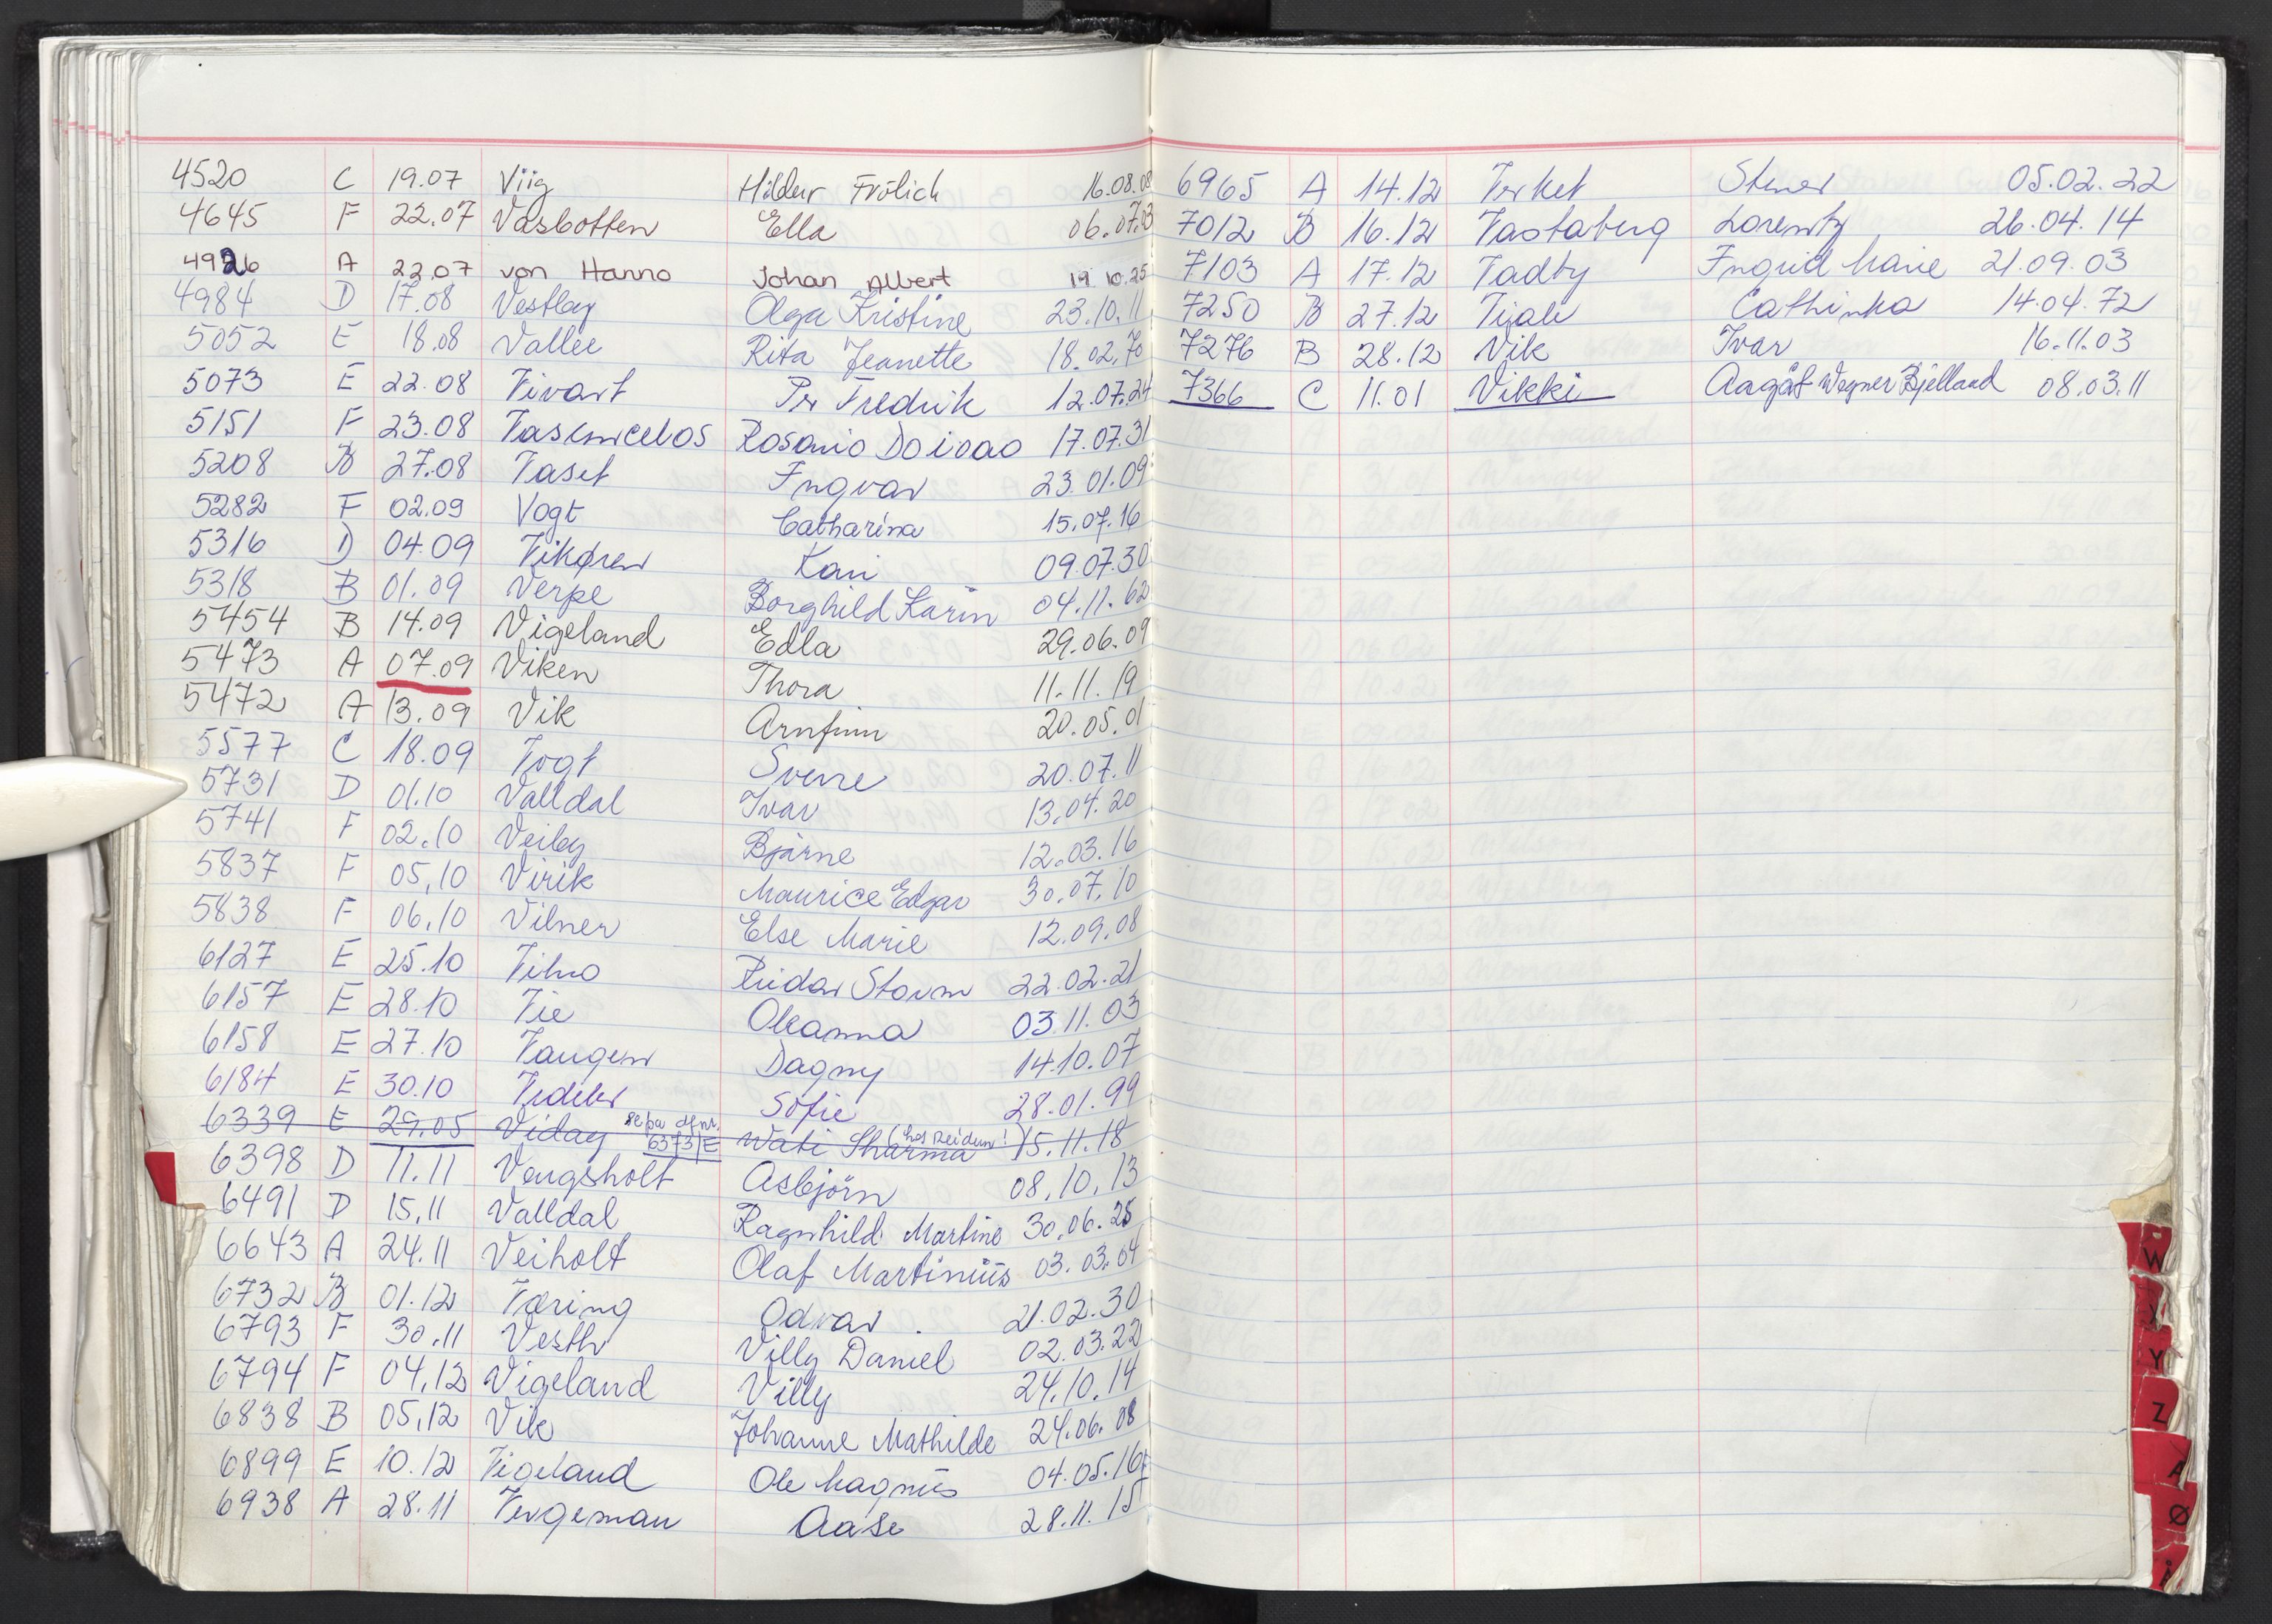 4520 C 19.07 Viig Hildur Frölich 16.08.08
4645 F 22.07 Vasbotten Ella 06.07.03
4926 A 22.07 von Hanno Johan Albert 19.10.25
4984 D 17.08 Vestby Olga Kristine 23.10.11
5052 E 18.08 Vallee Rita Jeanette 18.02.70
5073 E 22.08 Vivart Per Fredrik 12.07.24
5151 F 23.08 Rosario 17.07.31
5208 B 27.08 Vaset Ingvar 23.01.09
5282 F 02.09 Vogt Catharina 15.07.16
5316 D 04.09 Vikøren Kari 09.07.30
5318 B 01.09 Verpe Borghild Karin 04.11.62
5454 B 14.09 Vigeland Edla 29.06.09
5473 A 07.09 Viken Thora 11.11.19
5472 A 13.09 Vik Arnfinn 20.05.01
5577 C 18.09 Vogt Sverre 20.07.11
5731 D 01.10 Valldal Ivar 13.04.20
5741 F 02.10 Veiby Bjarne 12.03.16
5837 F 05.10 Virik Maurice Edgar 30.07.10
5838 F 06.10 Vilner Else Marie 12.09.08
6127 E 25.10 Reidar Storm 22.02.21
6157 E 28.10 Vie Oleanna 03.11.03
6158 E 27.10 Vangen Dagny 14.10.07
6184 E 30.10 Vedeler Sofie 28.01.99
6339 E 29.05 Viday se på dfnr. 6373/E Wati Sharma (hos Reidun!) 15.11.18
6398 D 11.11 Vengsholt Asbjörn 08.10.13
6491 D 15.11 Valldal Ragnhild Martine 30.06.25
6643 A 24.11 Veiholt Olaf Martiniüs 03.03.04
6732 B 01.12 Væring Odvar 21.02.30
6793 F 30.11 Vesth Villy Daniel 02.03.22
6794 F 04.12 Vigeland Villy 24.10.14
6838 B 05.12 Vik Johanne Mathilde 24.06.08
6899 E 10.12 Vigeland Ole Magnüs 04.05.16
6938 A 28.11 Vergeman Aase 28.11.15
6965 A 14.12 Verket Stener 05.02.22
7012 B 16.12 Vastaberg Lorentz 26.04.14
7103 A 17.12 Vadby Ingrid Marie 21.09.03
7250 B 27.12 Cathinka 14.04.72
7276 B 28.12 Vik Ivar 16.11.03
7366 C 11.01 Vikki Aagåt Wegner Bjelland 08.03.11
W
X
Y
Z
Æ
Ø
Å